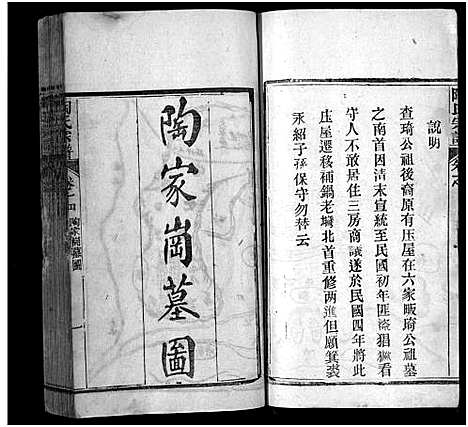 說明
查琦公祖後裔原有庄屋在六家畈琦公祖墓
之南首因清末宣統至民國初年匪盜猖獗看
守人不敢居住三房商議遂於民國四年將此
庄屋遷移補鍋老塆北首重修兩進但願箕裘
永紹子孫保守勿替云
陶家崗墓圖
陶家崗墓圖